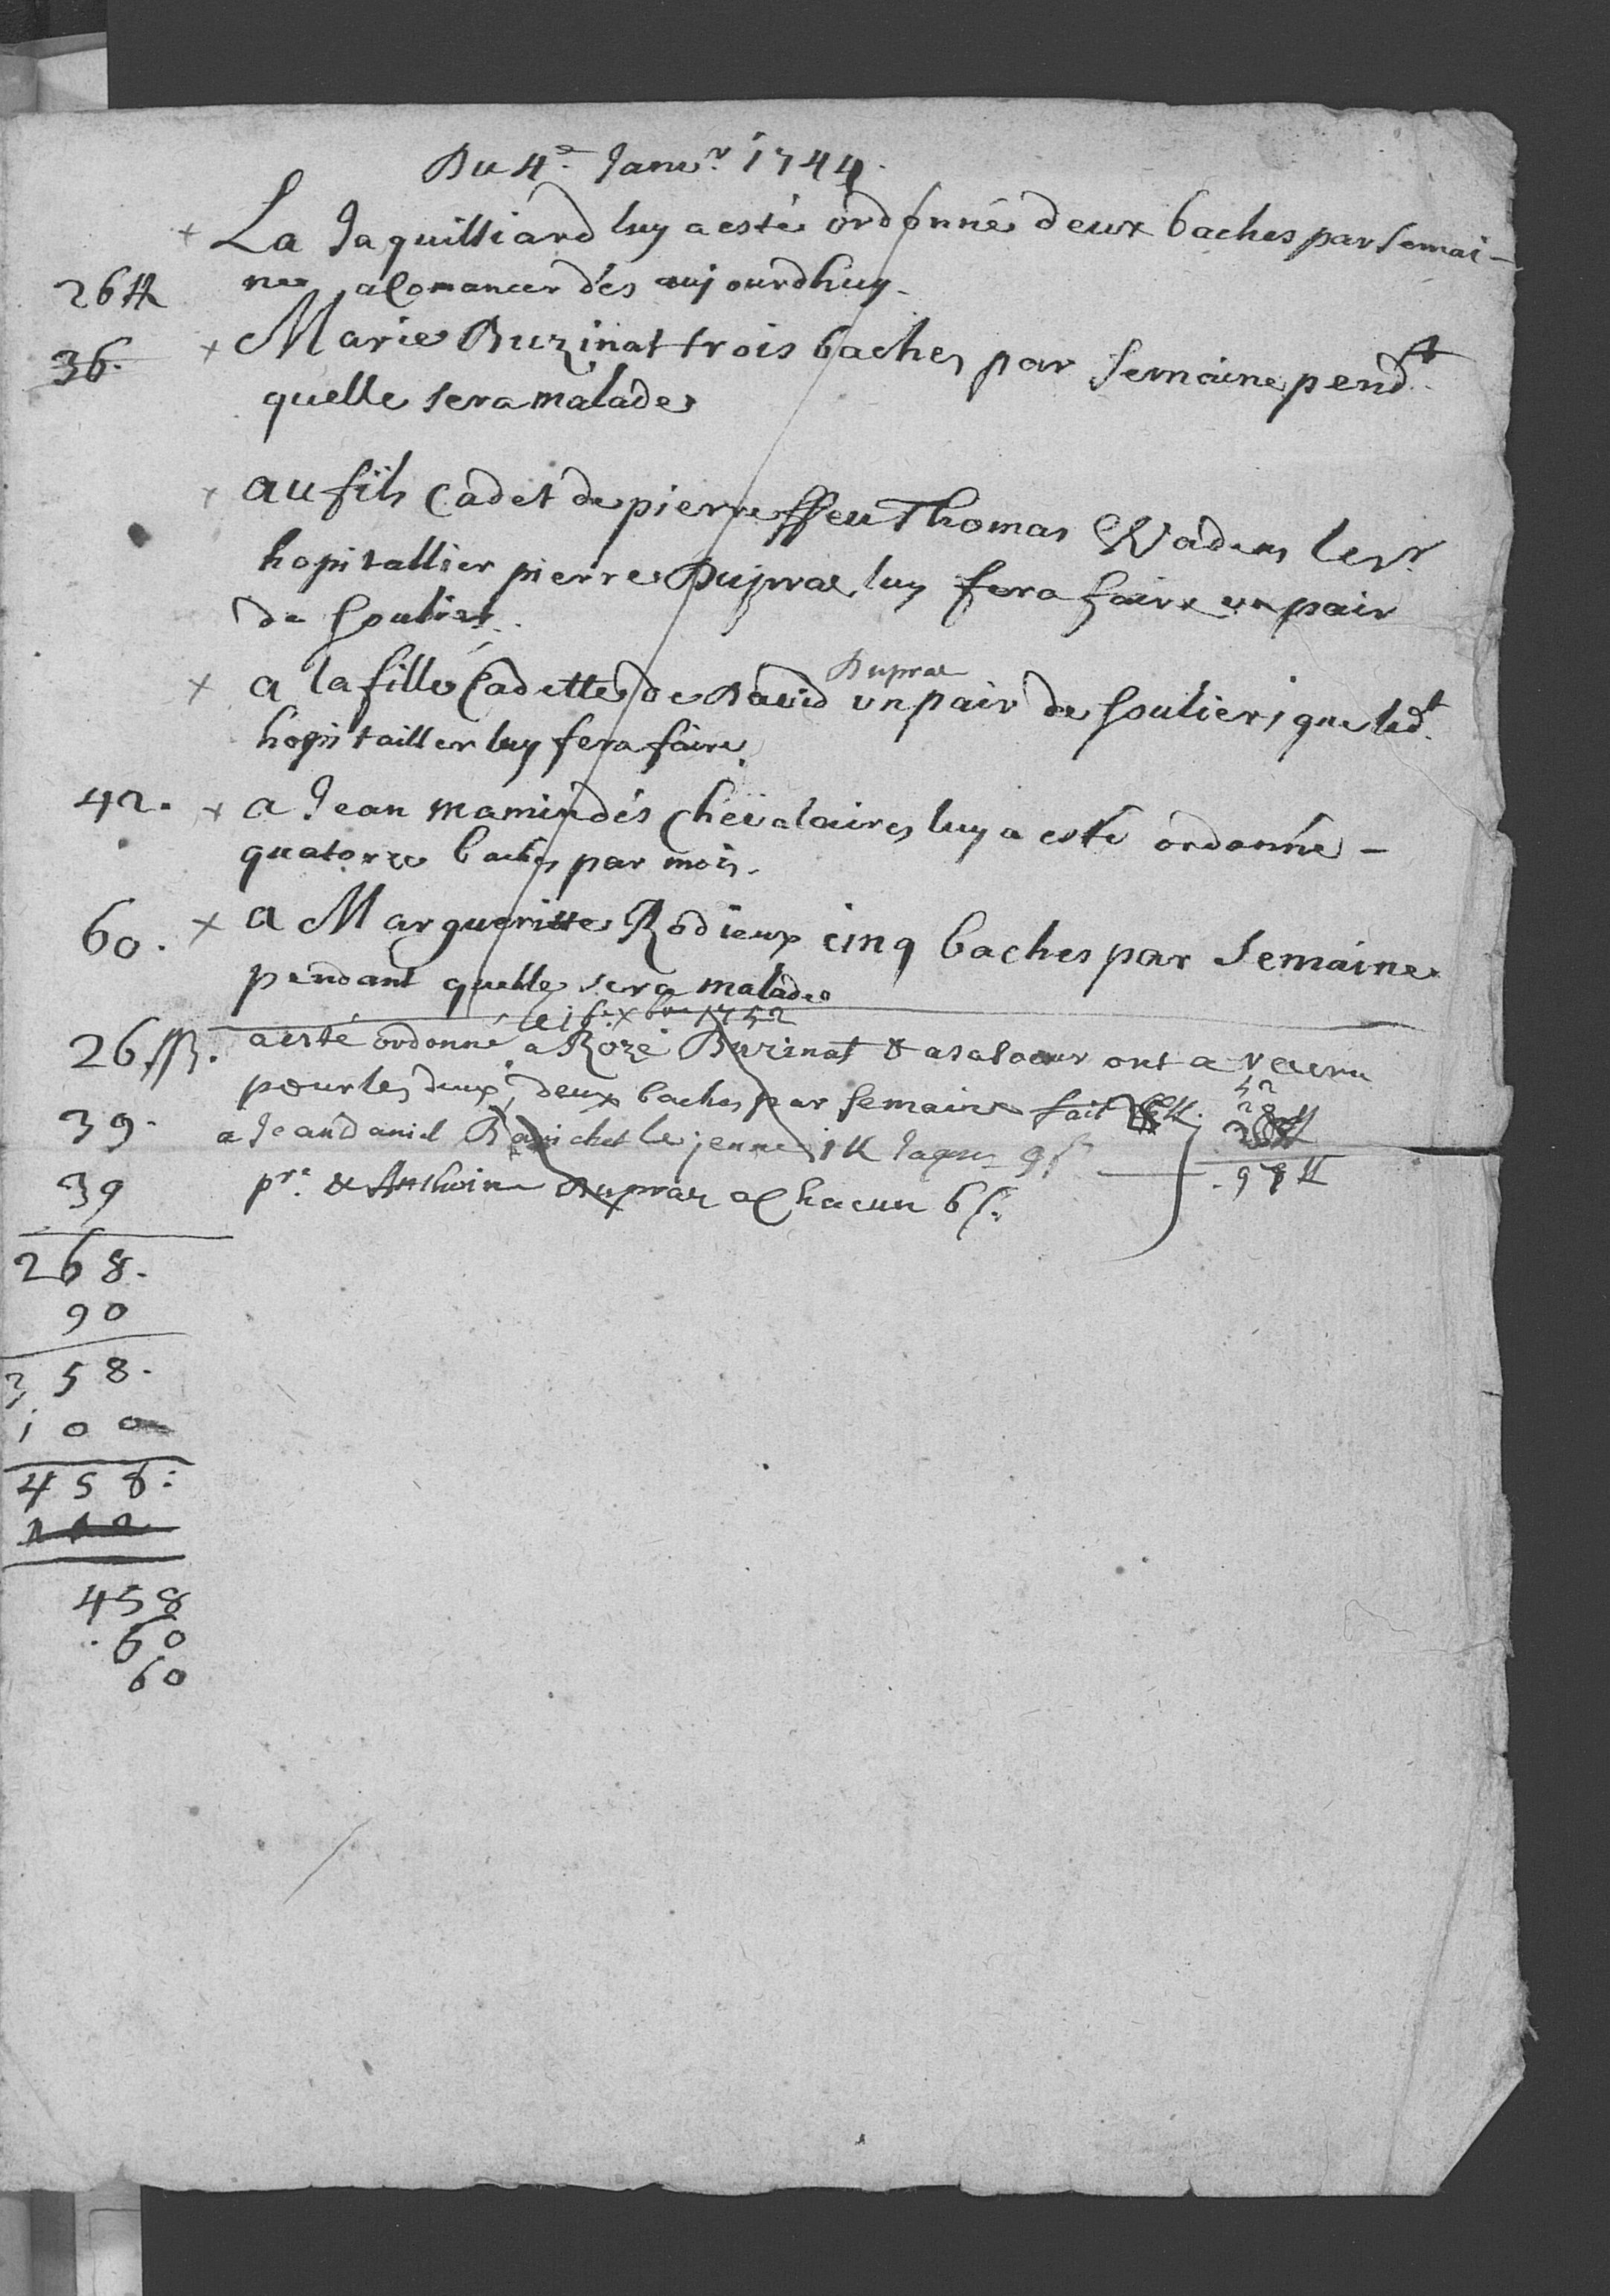 Du 4.e Janv.r 1744.
+ La Jaquilliard luy a esté ordonné deux baches par semai-
26 ₶ ne a Comancer dés aujourdhuy.
36. + Marie Buzinat trois baches par semaine pend.t
quelle sera malade
+ au fils Cadet de pierre ffeu Thomas Wadens le Sr
hopitallier pierre Dupraz luy fera faire un pair
de soulier.
Dupraz
+ a la fille Cadette de David un pair de souliers que led.t
hopitailler luy fera faire.
42. + a Jean mamin dés Chevalaires luy a esté ordonné -
quatorze baches par mois.
60. + a Margueritte Rodieux cinq baches par Semaine
pendant quelle sera malade
le 16.e Xbre 1752
26 ff. a esté ordonné a Rozé Buzinat & a sa soeur
pour les deux, deux baches par semaine fait
52
39. a Jean Daniel le jeune 1 ₶ Jaques 9 s
97 ₶
39 pre. & Anthoine Dupraz a Chacun 6 s.
268.
90
358.
100
458:
458
60
60